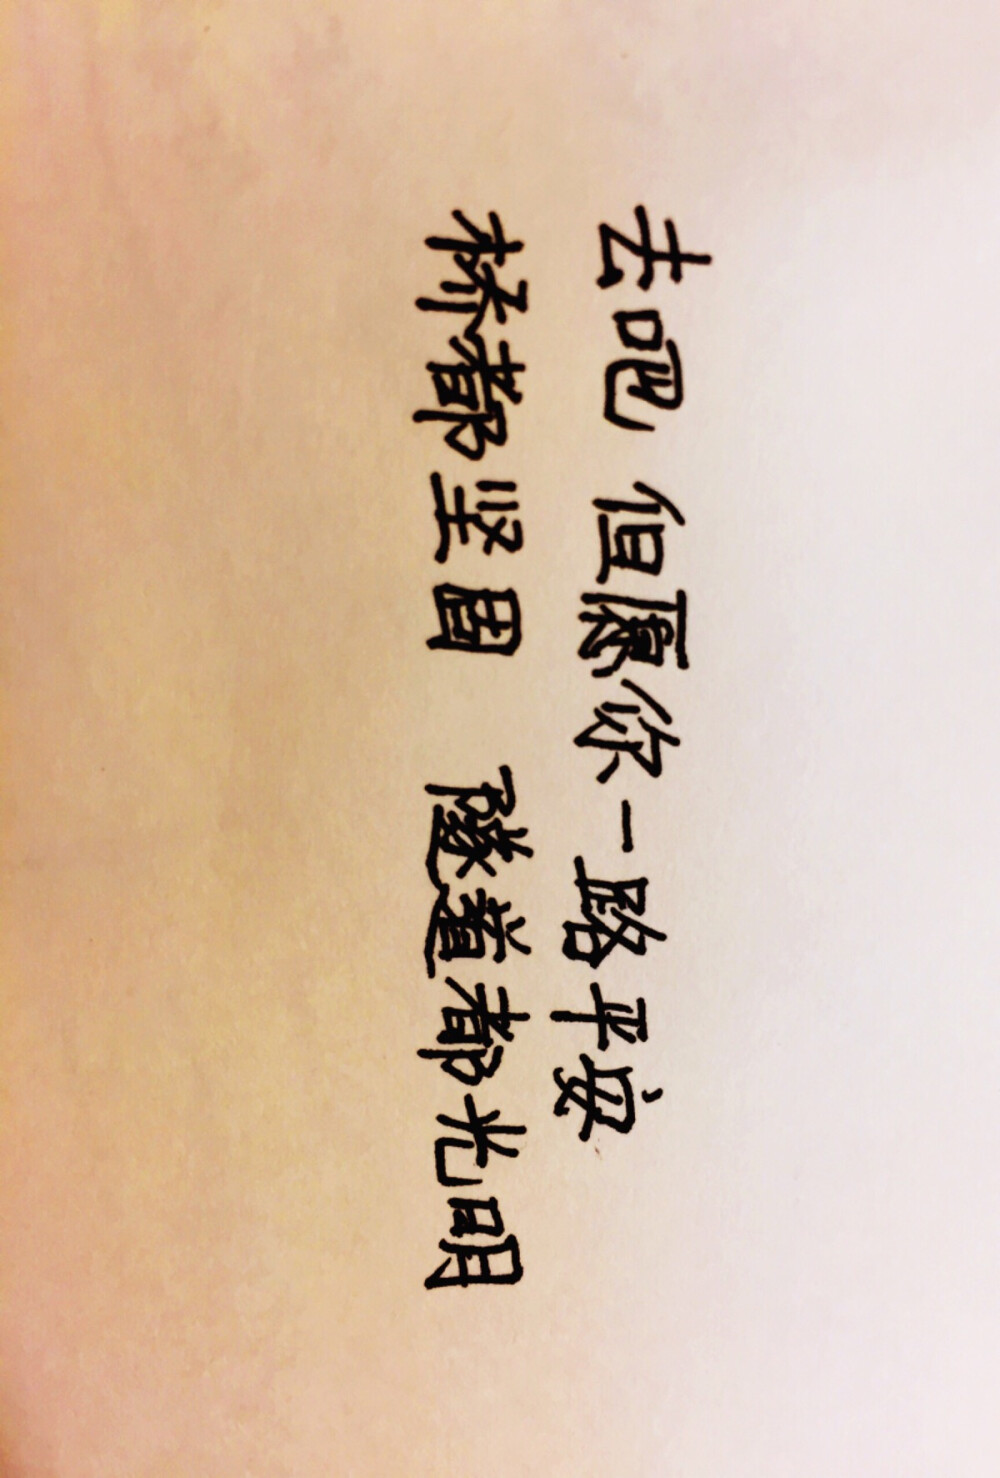 去吧 但愿你一路平安
桥都坚固 隧道都光明